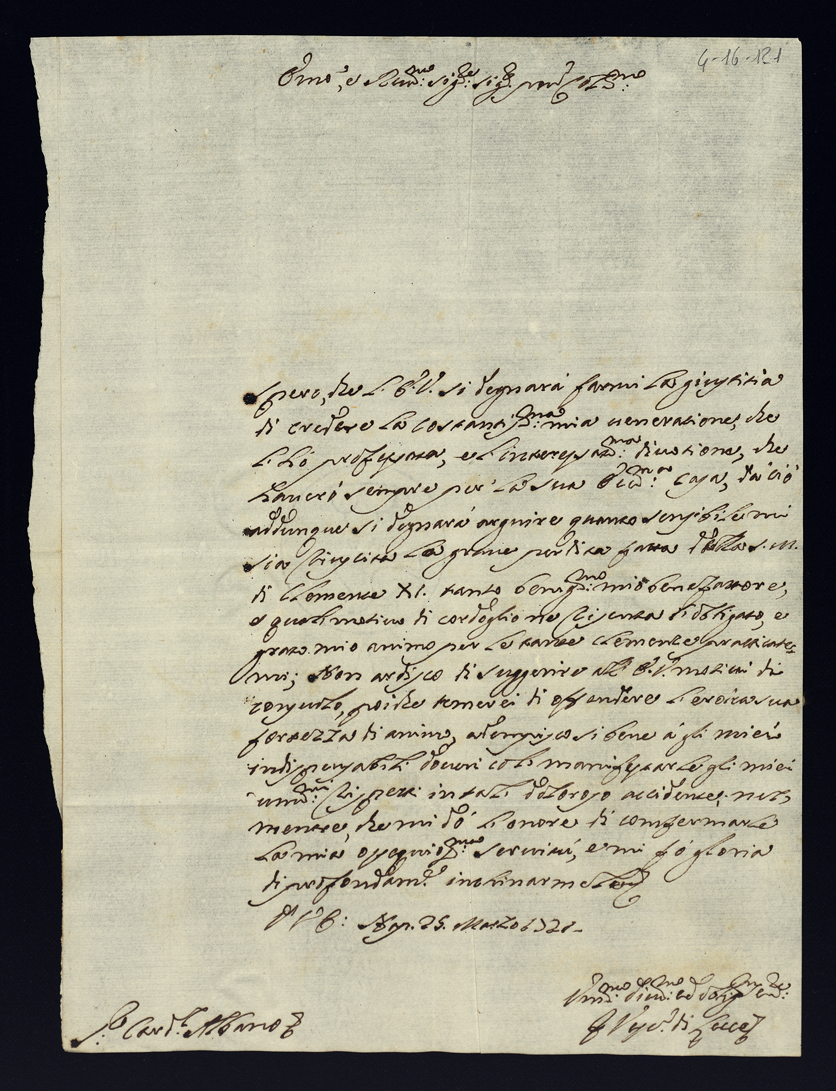 4-16-121
Em.o, e Rev.mo Sig.re Sig.re pron Col.mo
Spero, che l'E.V. si degnarà farmi la giustitia
di credere la costantiss.ma mia veneratione, che
l'hò professata, e l'interessat.ma divotione, che
haverò sempre per la sua Ecc.ma Casa, da ciò
addunque si degnarà arguire quanto sensibile mi
sia riuscita la grave perdita fatta della S.M.
di Clemente XI. tanto benig.mo mio benefattore,
e qual motivo di cordoglio ne risenta l'obligato, e
grato mio animo per le tante clemenze pratticate-
mi; Non ardisco di suggerire all'E.V. motivi di
conforto, poiche temerei di offendere l'eroica sua
fortezza di animo, adempisco si bene à gli miei
indispensabili doveri col manifestarle gli miei
um.mi rispetti in tal doloroso accidente; nel
mentre, che mi dò l'onore di confermarle
la mia ossequios.ma servitù, e mi fò gloria
di profondam.e inchinarmele
D.V.E: Nap. 25. Marzo 1721-
Um.mo Div.mo ed Oblig. Ser.re
Il Vesc.o di Lecce
S.r Card.l Albano